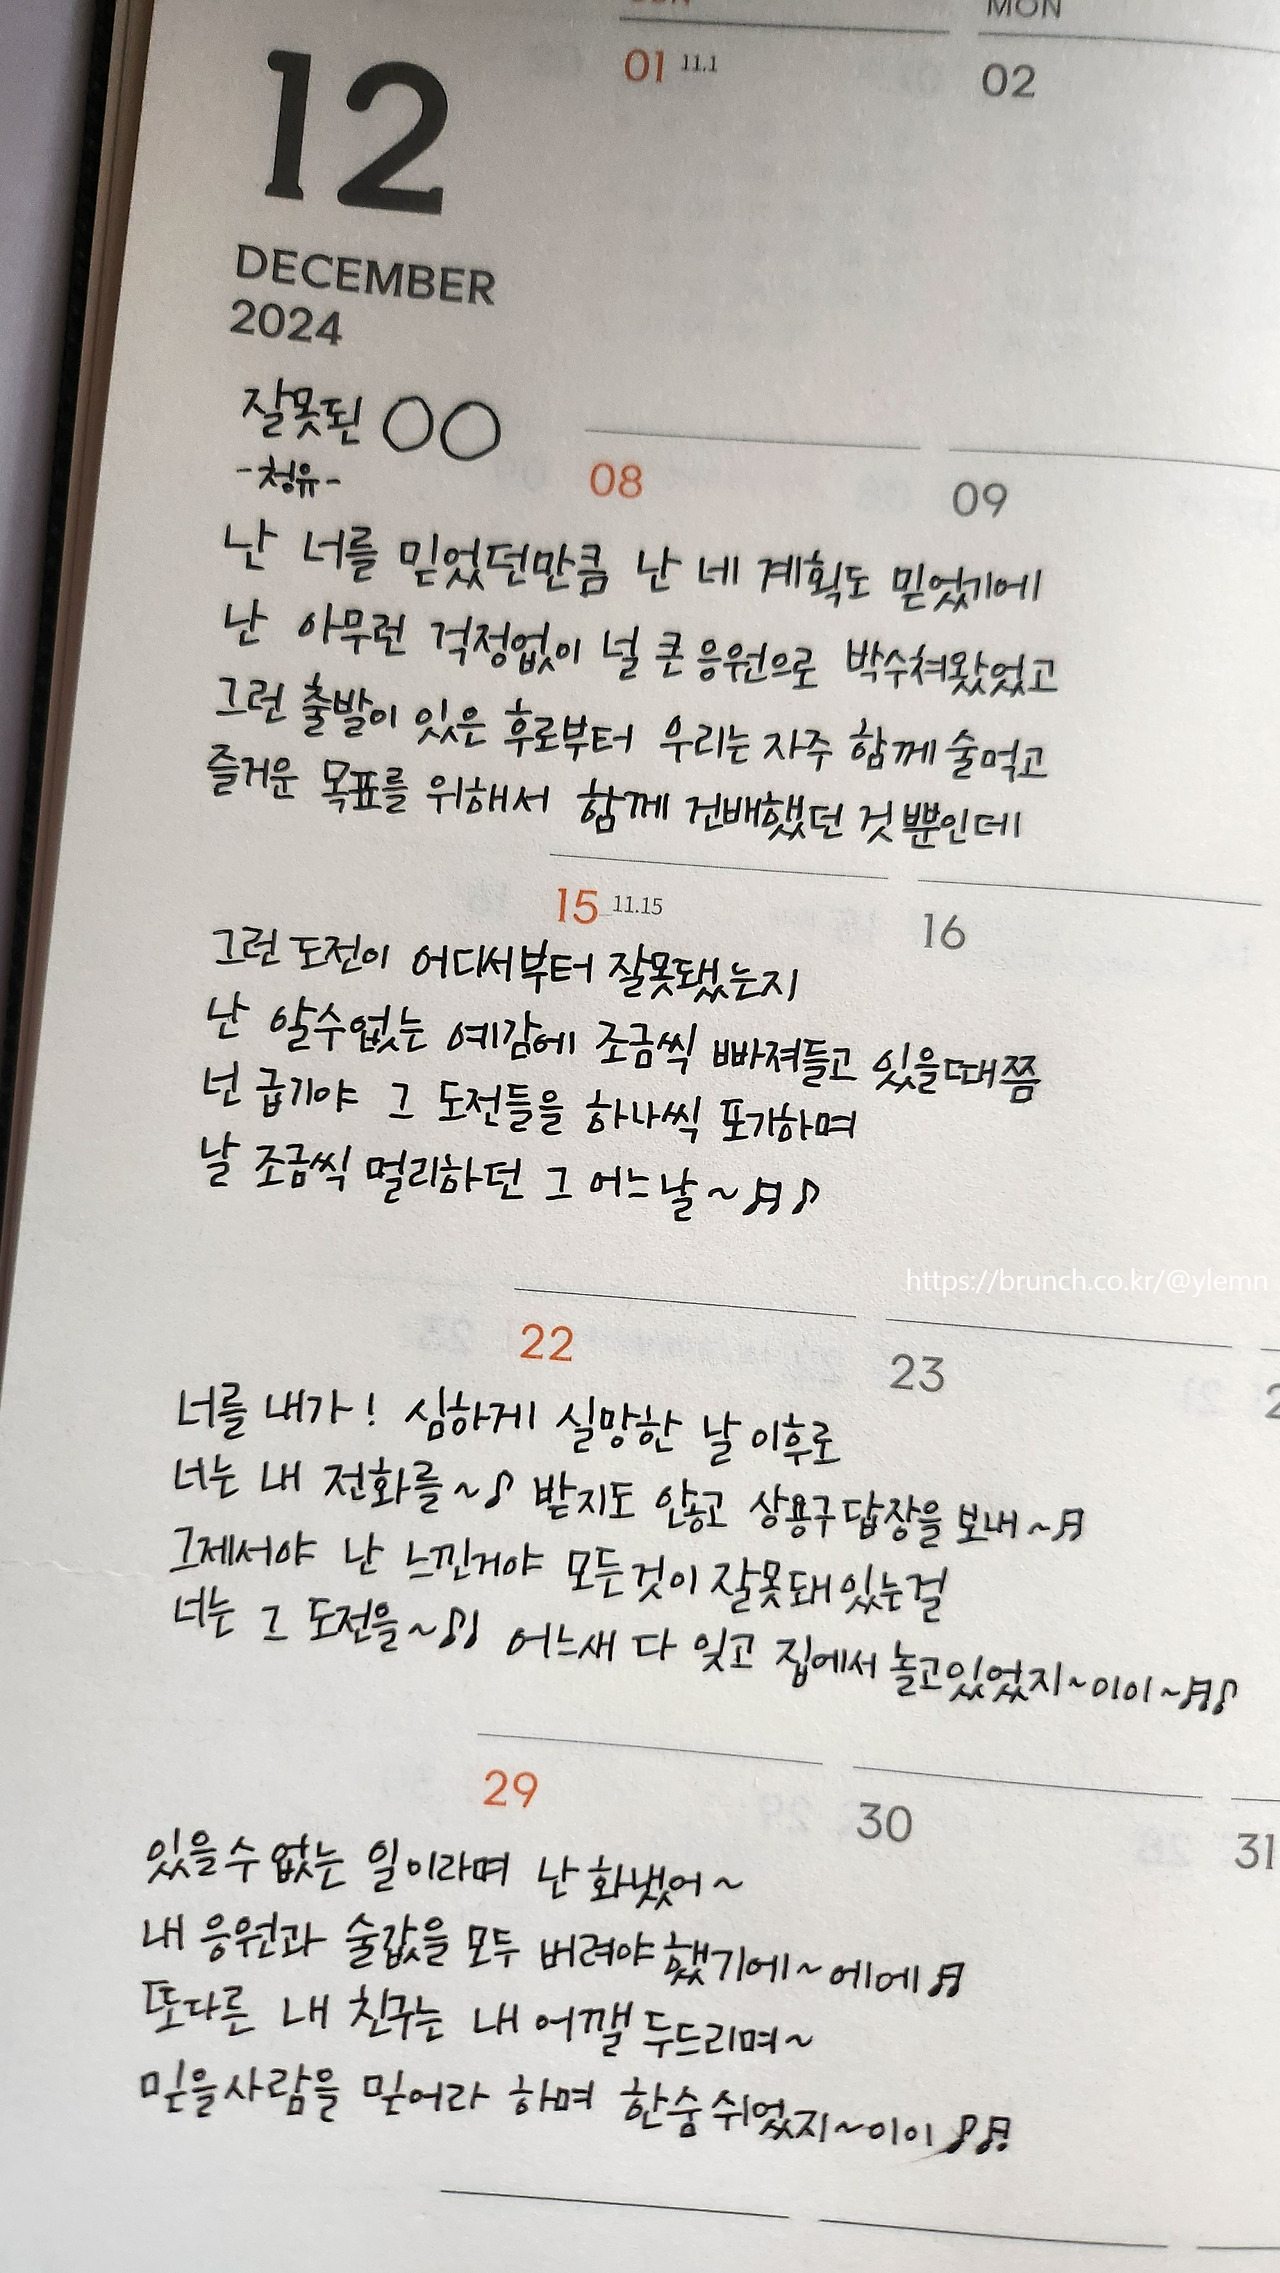 SUN MON
12 01 11.1 02
DECEMBER
2024
잘못된 ○○
-청유-
08 09
난 너를 믿었던만큼 난 네 계획도 믿었기에
난 아무런 걱정없이 널 큰 응원으로 박수쳐왔었고
그런 출발이 있은 후로부터 우리는 자주 함께 술먹고
즐거운 목표를 위해서 함께 건배했던 것 뿐인데
15 11.15 16
그런 도전이 어디서부터 잘못됐는지
난 알수없는 예감에 조금씩 빠져들고 있을때쯤
넌 급기야 그 도전들을 하나씩 포기하며
날 조금씩 멀리하던 그 어느날~♬♪
https://brunch.co.kr/@ylemn
22 23 2
너를 내가! 심하게 실망한 날 이후로
너는 내 전화를~♪ 받지도 않고 상용구 답장을 보내~♬
그제서야 난 느낀거야 모든것이 잘못돼있는걸
너는 그 도전을~♪♩ 어느새 다 잊고 집에서 놀고있었지~이이~♬♪
29 30 31
있을수 없는 일이라며 난 화냈어~
내 응원과 술값을 모두 버려야했기에~에에♬
또다른 내 친구는 내 어깰 두드리며~
믿을사람을 믿어라 하며 한숨쉬었지~이이♪♬